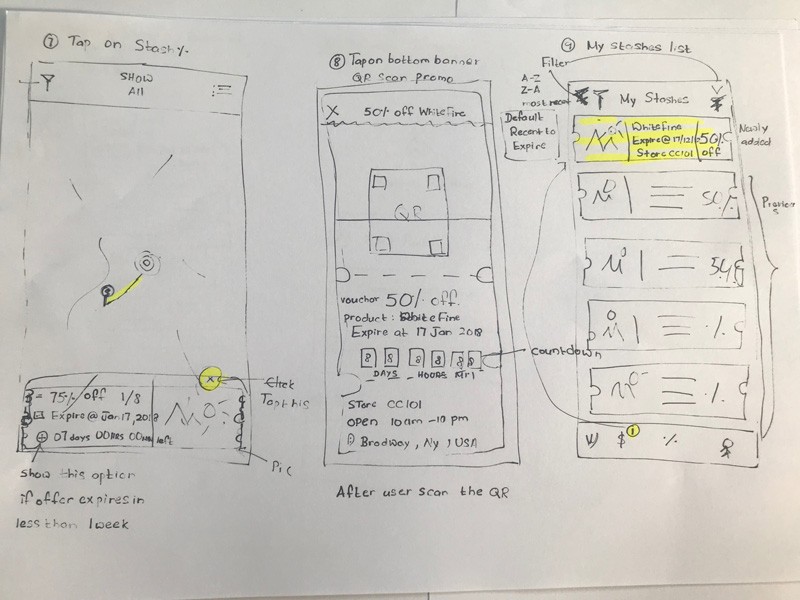 7 Tap on Stashy.
SHOW
All
75% off 1/8
Expire @ Jan 17, 2018
07 days 00HRS 00MIN left
Tap this
Pic
Show this option
if offer expires in
less than 1 week
8 Tap on bottom banner
QR Scan promo
X 50% off WhiteFine
QR
vouchor 50% off.
product: WhiteFine
Expire at 17 Jan 2018
8 8 8 8 8 8
DAYS HOURS
countdown
Store CC101
OPEN 10am -10 pm
Brodway, Ny, USA
After user scan the QR
9 My stashes list
Filter
A-Z
Z-A
most recent
Default
Recent to
Expire
My Stashes
WhiteFine
Expire @ 17/12/
Store CC101
50%
off
Newly
added
50%
%
%
Previous
$ 1 %